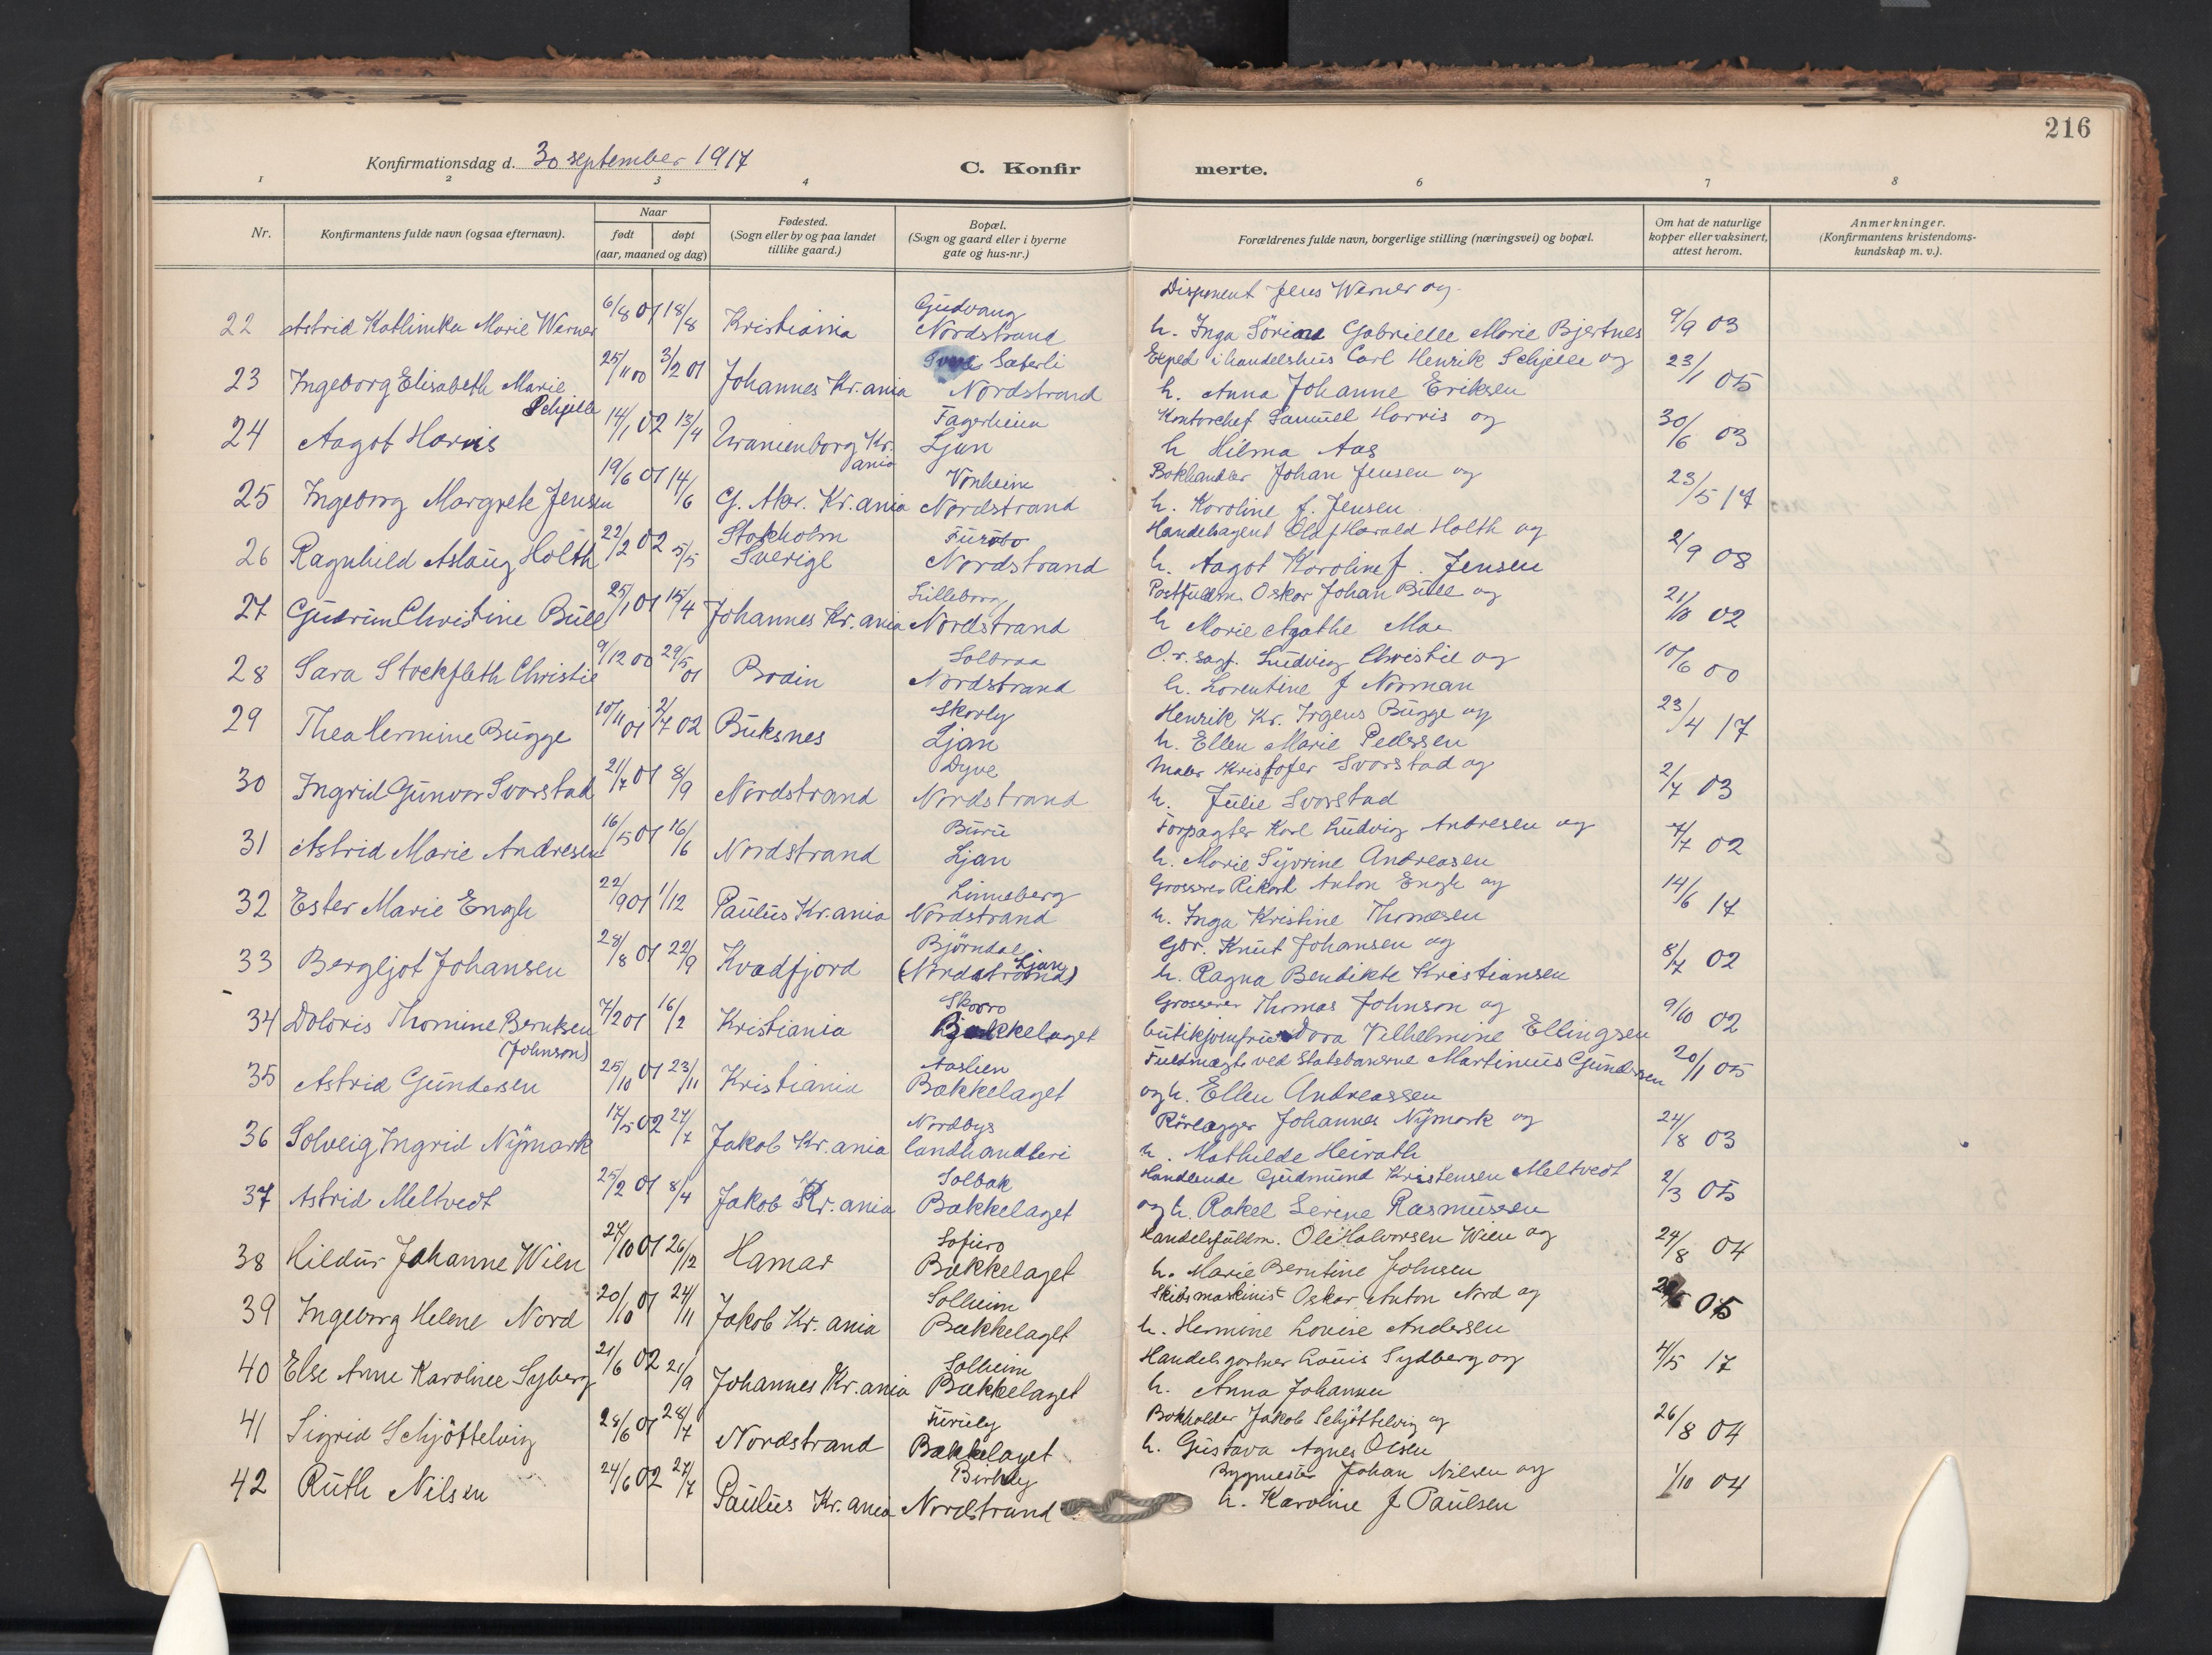 216
Konfirmationsdag d. 30 september 1917
C. Konfirmerte.
1 2 3 4 6 7 8
Nr.
Konfirmantens fulde navn (ogsaa efternavn).
Naar
født døpt
(aar, maaned og dag)
Fødested.
(Sogn eller by og paa landet
tillike gaard.)
Bopæl.
(Sogn og gaard eller i byerne
gate og hus-nr.)
Forældrenes fulde navn, borgerlige stilling (næringsvei) og bopæl.
Om hat de naturlige
kopper eller vaksinert,
attest herom.
Anmerkninger.
(Konfirmantens kristendoms-
kundskap m. v.).
Gudvang Disponent Jens Werner og
22 Astrid Kathinka Marie Werner 6/8 01 18/8 Kristiania Nordstrand h. Inga Sörine Gabrielle Marie Bjertnes 9/9 03
Sæterli Exped. i handelshus Carl Henrik Schjelle og
23 Ingeborg Elisabeth Marie Schjelle 25/11 00 3/2 01 Johannes Kr.ania Nordstrand h. Anna Johanne Eriksen 23/1 05
Fagerheim Kontorchef Samuel Harris og
24 Aagot Harris 14/1 02 13/4 Uranienborg Kr.ania Ljan h Hilma Aas 30/6 03
Vonheim Bokhandler Johan Jensen og
25 Ingeborg Margrete Jensen 19/6 01 14/6 G. Aker. Kr.ania Nordstrand h. Karoline f. Jensen 23/5 17
Stokholm Furubo Handelsagent Olaf Harald Holth og
26 Ragnhild Aslaug Holth 22/2 02 5/5 Sverige Nordstrand h. Aagot Karoline f. Jensen 2/9 08
Lilleborg Postfuldm. Oskar Johan Bull og
27 Gudrun Christine Bull 25/1 01 15/4 Johannes Kr.ania Nordstrand h Marie Agathe Moe 21/10 02
Solbraa O.r.sagf. Ludvig Christie og
28 Sara Stockfleth Christie 9/12 00 29/5 01 Bodin Nordstrand h. Lorentine f Norman 10/6 00
Skorly Henrik Kr. Irgens Bugge og
29 Thea Hermine Bugge 10/11 01 2/7 02 Buksnes Ljan h. Ellen Marie Pedersen 23/4 17
Dyve Maler Kristofer Svorstad og
30 Ingrid Gunvor Svorstad 21/7 01 8/9 Nordstrand Nordstrand h. Julie Svorstad 2/7 03
Buru Forpagter Karl Ludvig Andresen og
31 Astrid Marie Andresen 16/5 01 16/6 Nordstrand Ljan h. Marie Syvrine Andreasen 7/7 02
Linneberg Grosserer Rikard Anton Engh og
32 Ester Marie Engh 22/9 01 1/12 Paulus Kr.ania Nordstrand h. Inga Kristine Thomesen 14/6 17
Björndal Gbr. Knut Johansen og
33 Bergljot Johansen 28/8 01 22/9 Kvædfjord (Nordstrand) Ljan h. Ragna Bendikte Kristiansen 8/7 02
Skovro Grosserer Thomas Johnson og
34 Doloris Thomine Berntsen (Johnson) 7/2 01 16/2 Kristiania Bækkelaget butikjomfru Dora Vilhelmine Ellingsen 9/10 02
Aaslien Fuldmægt. ved Statsbanerne Martinius Gundersen
35 Astrid Gundersen 25/10 01 23/11 Kristiania Bækkelaget og h. Ellen Andreassen 20/1 05
Nordbys Rörlægger Johannes Nymark og
36 Solveig Ingrid Nymark 17/5 02 27/7 Jakob Kr.ania landhandleri h. Mathilde Heirath 24/8 03
Solbak Handlende Gudmund Kristensen Meltvedt
37 Astrid Meltvedt 25/2 01 8/4 Jakob Kr.ania Bækkelaget og h. Rakel Serine Rasmussen 2/3 05
Sofiero Handelsfuldm. Ole Halvorsen Wien og
38 Hildur Johanne Wien 24/10 01 26/12 Hamar Bækkelaget h. Marie Berntine Johnsen 24/8 04
Solheim Skibsmaskinist Oskar Anton Nord og
39 Ingeborg Helene Nord 20/10 01 24/11 Jakob Kr.ania Bækkelaget h. Hermine Louise Andersen 05
Solheim Handelsgartner Louis Sydberg og
40 Else Anne Karoline Syberg 21/6 02 21/9 Johannes Kr.ania Bækkelaget h. Anna Johansen 4/5 17
Furuly Bokholder Jakob Schjöttelvig og
41 Sigrid Schjöttelvig 28/6 01 28/7 Nordstrand Bækkelaget h. Gustava Agnes Olsen 26/8 04
Birkely Bygmester Johan Nilsen og
42 Ruth Nilsen 24/6 02 27/7 Paulus Kr.ania Nordstrand h. Karoline f Paulsen 1/10 04